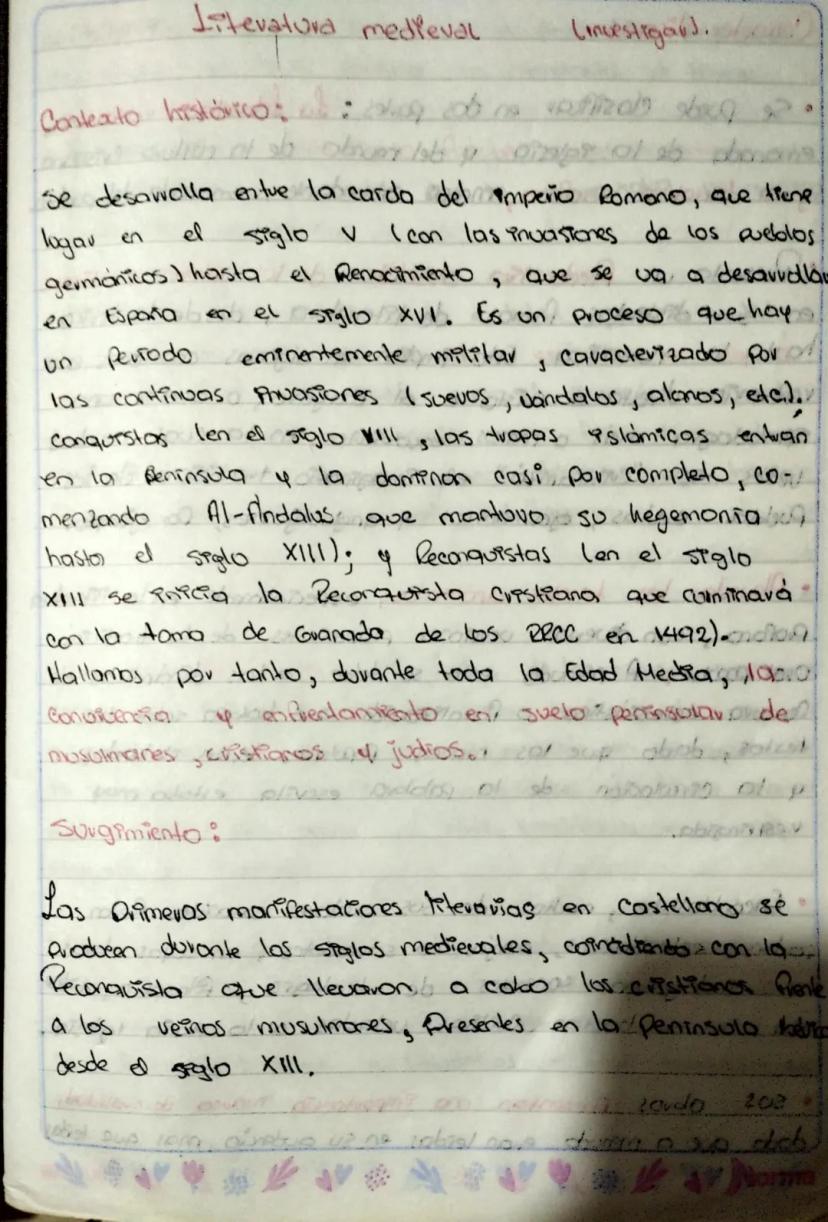 Literatura medieval (investigar).
Contexto histórico:
se desarrolla entre la caída del imperio Romano, que tiene
lugar en el siglo V (con las invasiones de los pueblos
germánicos) hasta el Renacimiento, que se va a desarrollar
en España en el siglo XVI. Es un proceso que hay
un periodo eminentemente militar, caracterizado por
las continuas invasiones (suevos, vándalos, alanos, etc.).
conquistas (en el siglo VIII, las tropas islámicas entran
en la Península y la dominan casi por completo, co-
menzando Al-Andalus que mantuvo su hegemonía
hasta el siglo XIII); y Reconquistas (en el siglo
XIII se inicia la Reconquista cristiana que culminará
con la toma de Granada de los RRCC en 1492).
Hallamos por tanto, durante toda la Edad Media, la
convivencia y enfrentamiento en suelo peninsular de
musulmanes, cristianos y judios.
Surgimiento:
Las primeras manifestaciones literarias en castellano se
producen durante los siglos medievales, coincidiendo con la
Reconquista que llevaron a cabo los cristianos frente
a los reinos musulmanes, Presentes en la Península
desde el siglo XIII.
Norma